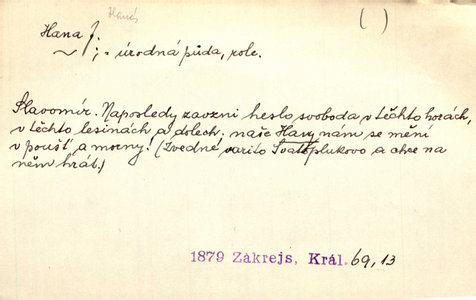 Haná
( )
Hana f.
~ f; = úrodná půda, role.
Slavomír. Naposledy zavzni heslo svoboda v těchto horách,
v těchto lesinách a dolech: naše Hany nám se mění
v poušť a mozny! (Zvedne varito Svatoplukovo a chce na
něm hrát.)
1879 Zákrejs, Král. 69, 13